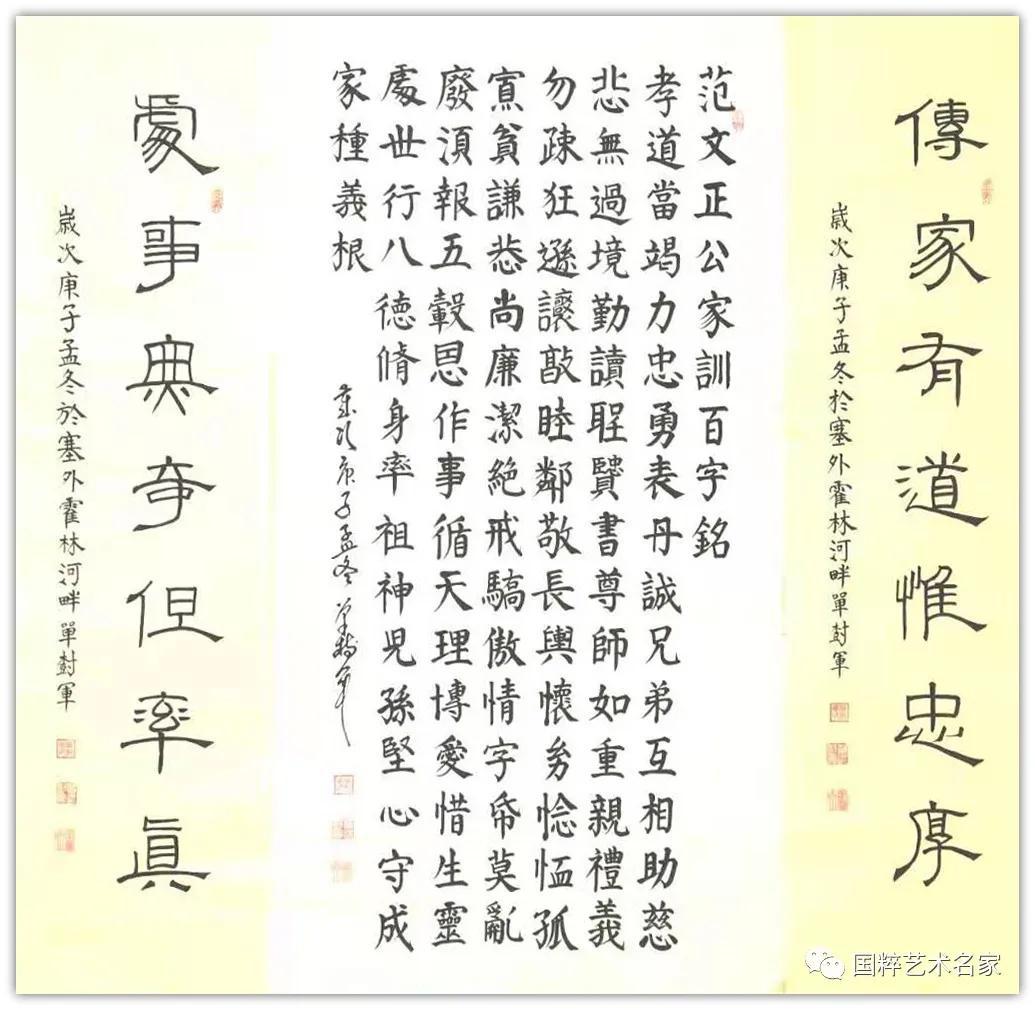 傳家有道惟忠厚
歲次庚子孟冬於塞外霍林河畔單封軍
范文正公家訓百字銘
孝道當竭力忠勇表丹誠兄弟互相助慈
悲無過境勤讀聖賢書尊師如重親禮義
勿疎狂遜讓敦睦鄰敬長與懷幼惗恤孤
寡貧謙恭尚廉潔絕戒驕傲情字帋莫亂
廢須報五穀恩作事循天理博愛惜生靈
處世行八德脩身率祖神児孫堅心守成
家種義根
歲次庚子孟冬單封軍
處事無奇但率真
歲次庚子孟冬於塞外霍林河畔單封軍
国粹艺术名家